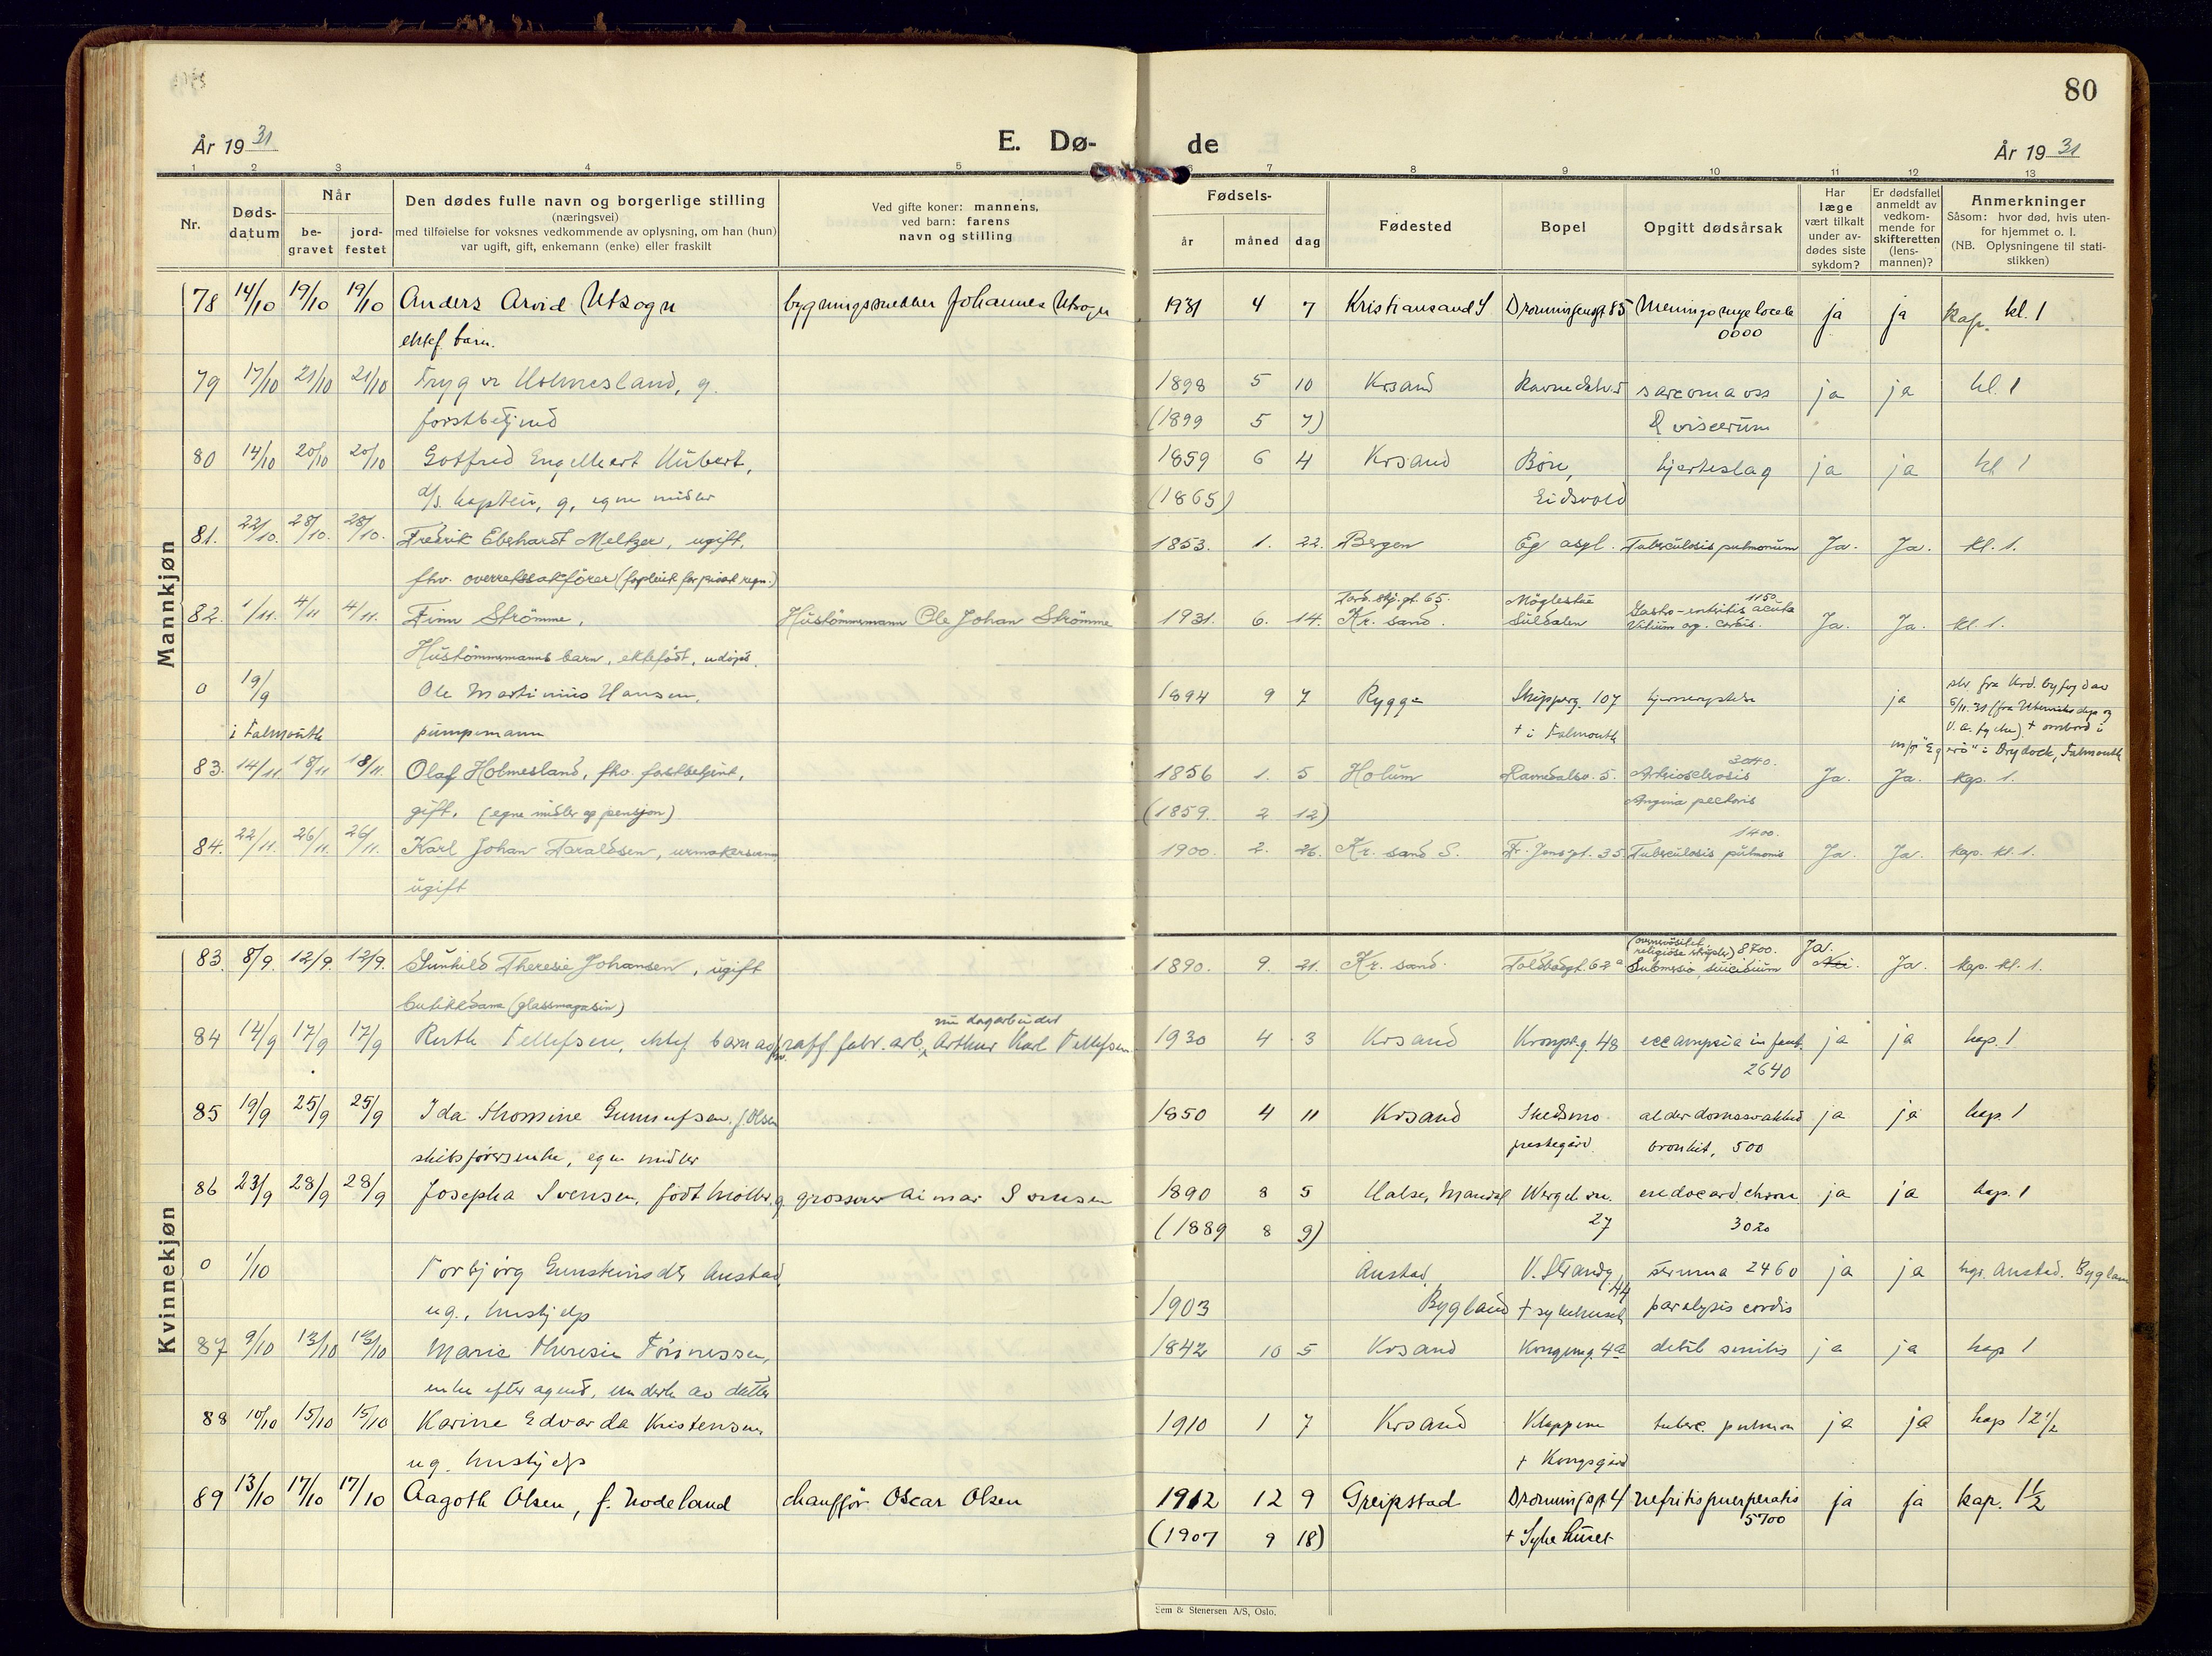 80
År 19 31
E. Dø-
de
År 19 31
1 2 3 4 5 6 7 8 9 10 11 12 13
Nr.
Døds-
datum
Når
be-
gravet
jord-
festet
Den dødes fulle navn og borgerlige stilling
(næringsvei)
med tilføielse for voksnes vedkommende av oplysning, om han (hun)
var ugift, gift, enkemann (enke) eller fraskilt
Ved gifte koner: mannens,
ved barn: farens
navn og stilling
Fødsels-
år måned dag
Fødested
Bopel
Opgitt dødsårsak
Har
læge
vært tilkalt
under av-
dødes siste
sykdom?
Er dødsfallet
anmeldt av
vedkom-
mende for
skifteretten
(lens-
mannen)?
Anmerkninger
Såsom: hvor død, hvis uten-
for hjemmet o. l.
(NB. Oplysningene til stati-
stikken)
Mannkjøn
78 14/10 19/10 19/10 Anders Arvid Utsogn bygningssnekker Johannes Utsogn 1931 4 7 Kristiansand S Dronningensgt. 85 Meningomyelocele ja ja kap. kl. 1
ektef. barn. 0000
79 17/10 21/10 21/10 Trygve Holmesland, g. 1898 5 10 Krsand Ravnedalsv. 5 sarcoma oss ja ja kl. 1
forstbetjent (1899 5 7) & viscerum
80 14/10 20/10 20/10 Gotfred Engelhert Hubert, 1859 6 4 Krsand Bøn, hjerteslag ja ja kl 1
d/s. kaptein, g, egne midler (1865) Eidsvold
81. 22/10. 28/10. 28/10. Fredrik Eberhardt Meltzer, ugift, 1853. 1. 22. Bergen Eg asyl. Tuberculosis pulmonum Ja. Ja. kl. 1.
fhv. overrettssakfører (forpleiet for privat regn.)
82. 1/11. 4/11 4/11. Finn Strømme, Hustømmermann Ole Johan Strømme 1931. 6. 14. Kr. sand. Møglestue Suldalen Gastro-enteritis acuta 1150 Ja. Ja. kl. 1.
Hustømmermanns barn, ektefødt, udøpt. Vitium org. cordis.
0 19/9 Ole Martinius Hansen, 1894 9 7 Rygge Skipperg. 107 ja skr. fra Krd. byfogd av
i Falmouth pumpemann + i Falmouth 5/11. 31 (fra Utenriksdep og
+ ombord i
m/s "Egerö" i Drydock, Falmouth
83. 14/11. 18/11 18/11. Olaf Holmesland, fhv. forstbetjent, 1856 1. 5 Holum Ravnedalsv. 5. Arteriosclerosis Ja. Ja. kap. 1.
gift. (egne midler og pensjon) (1859. 2 12) Angina pectoris
84. 22/11. 26/11. 26/11. Karl Johan Faraldsen, urmakersvenn 1900. 2. 26. Kr. sand S. Fr. Jensgt. 35 Tuberculosis pulmonis 1400. Ja. Ja. kap. kl. 1.
ugift
Kvinnekjøn
83. 8/9. 12/9. 12/9. Gunhild Theresie Johansen, ugift 1890. 9. 21. Kr. sand. Toldbodgt. 62a (overnervøsitet, religiøse skrupler) 8700. Submersio, suicidium Ja. Nei. Ja. kap. kl. 1.
butikkdame (glassmagasin)
nu dagarbeider
84 14/9 17/9 17/9 Ruth Tellefsen, ektef. barn av fhv. raff. fabr. arb. Arthur Karl Tellefsen 1930 4 3 Krsand Kronprg. 48 eccampsia infant. ja ja kap. 1
2640
85 19/9 25/9 25/9 Ida Thomine Gunnufsen f. Olsen 1850 4 11 Krsand Skedsmo alderdomssvakhed ja ja kap. 1
skibsførerenke, egne midler prestegård. bronkit, 500
86 23/9 28/9 28/9 Josepha Svensen, født Møller, g. grosserer Aimar Svensen 1890 8 5 Halse, Mandal Wergelandsv. endocard. chron. ja ja kap. 1
(1889 8 9) 27 3020
0 1/10 Torbjørg Gunsteinsdtr Austad, Austad, V. Strandg. 44 struma 2460 ja ja bgr. Austad. Bygland
ug., hushjelp 1903 Bygland + sykehuset paralysis cordis
87 9/10 13/10 13/10 Marie Theresie Tønnessen, 1842 10 5 Krsand Kongensg. 4a debil. senilis ja ja kap 1
enke efter agent, underh. av datter
88 10/10 15/10 15/10 Karine Edvarda Kristensen, 1910 1 7 Krsand Kloppene tuberc. pulmon ja ja kap 12 1/2
ug. hushjelp + Kongsgård
89 13/10 17/10 17/10 Aagoth Olsen, f. Nodeland chauffør Oscar Olsen 1912 12 9 Greipstad Dronningsgt 4 nefritis puerperalis ja ja kap. 1 1/2
(1907 9 18) + Sykehuset 5700
Sem & Stenersen A/S, Oslo.